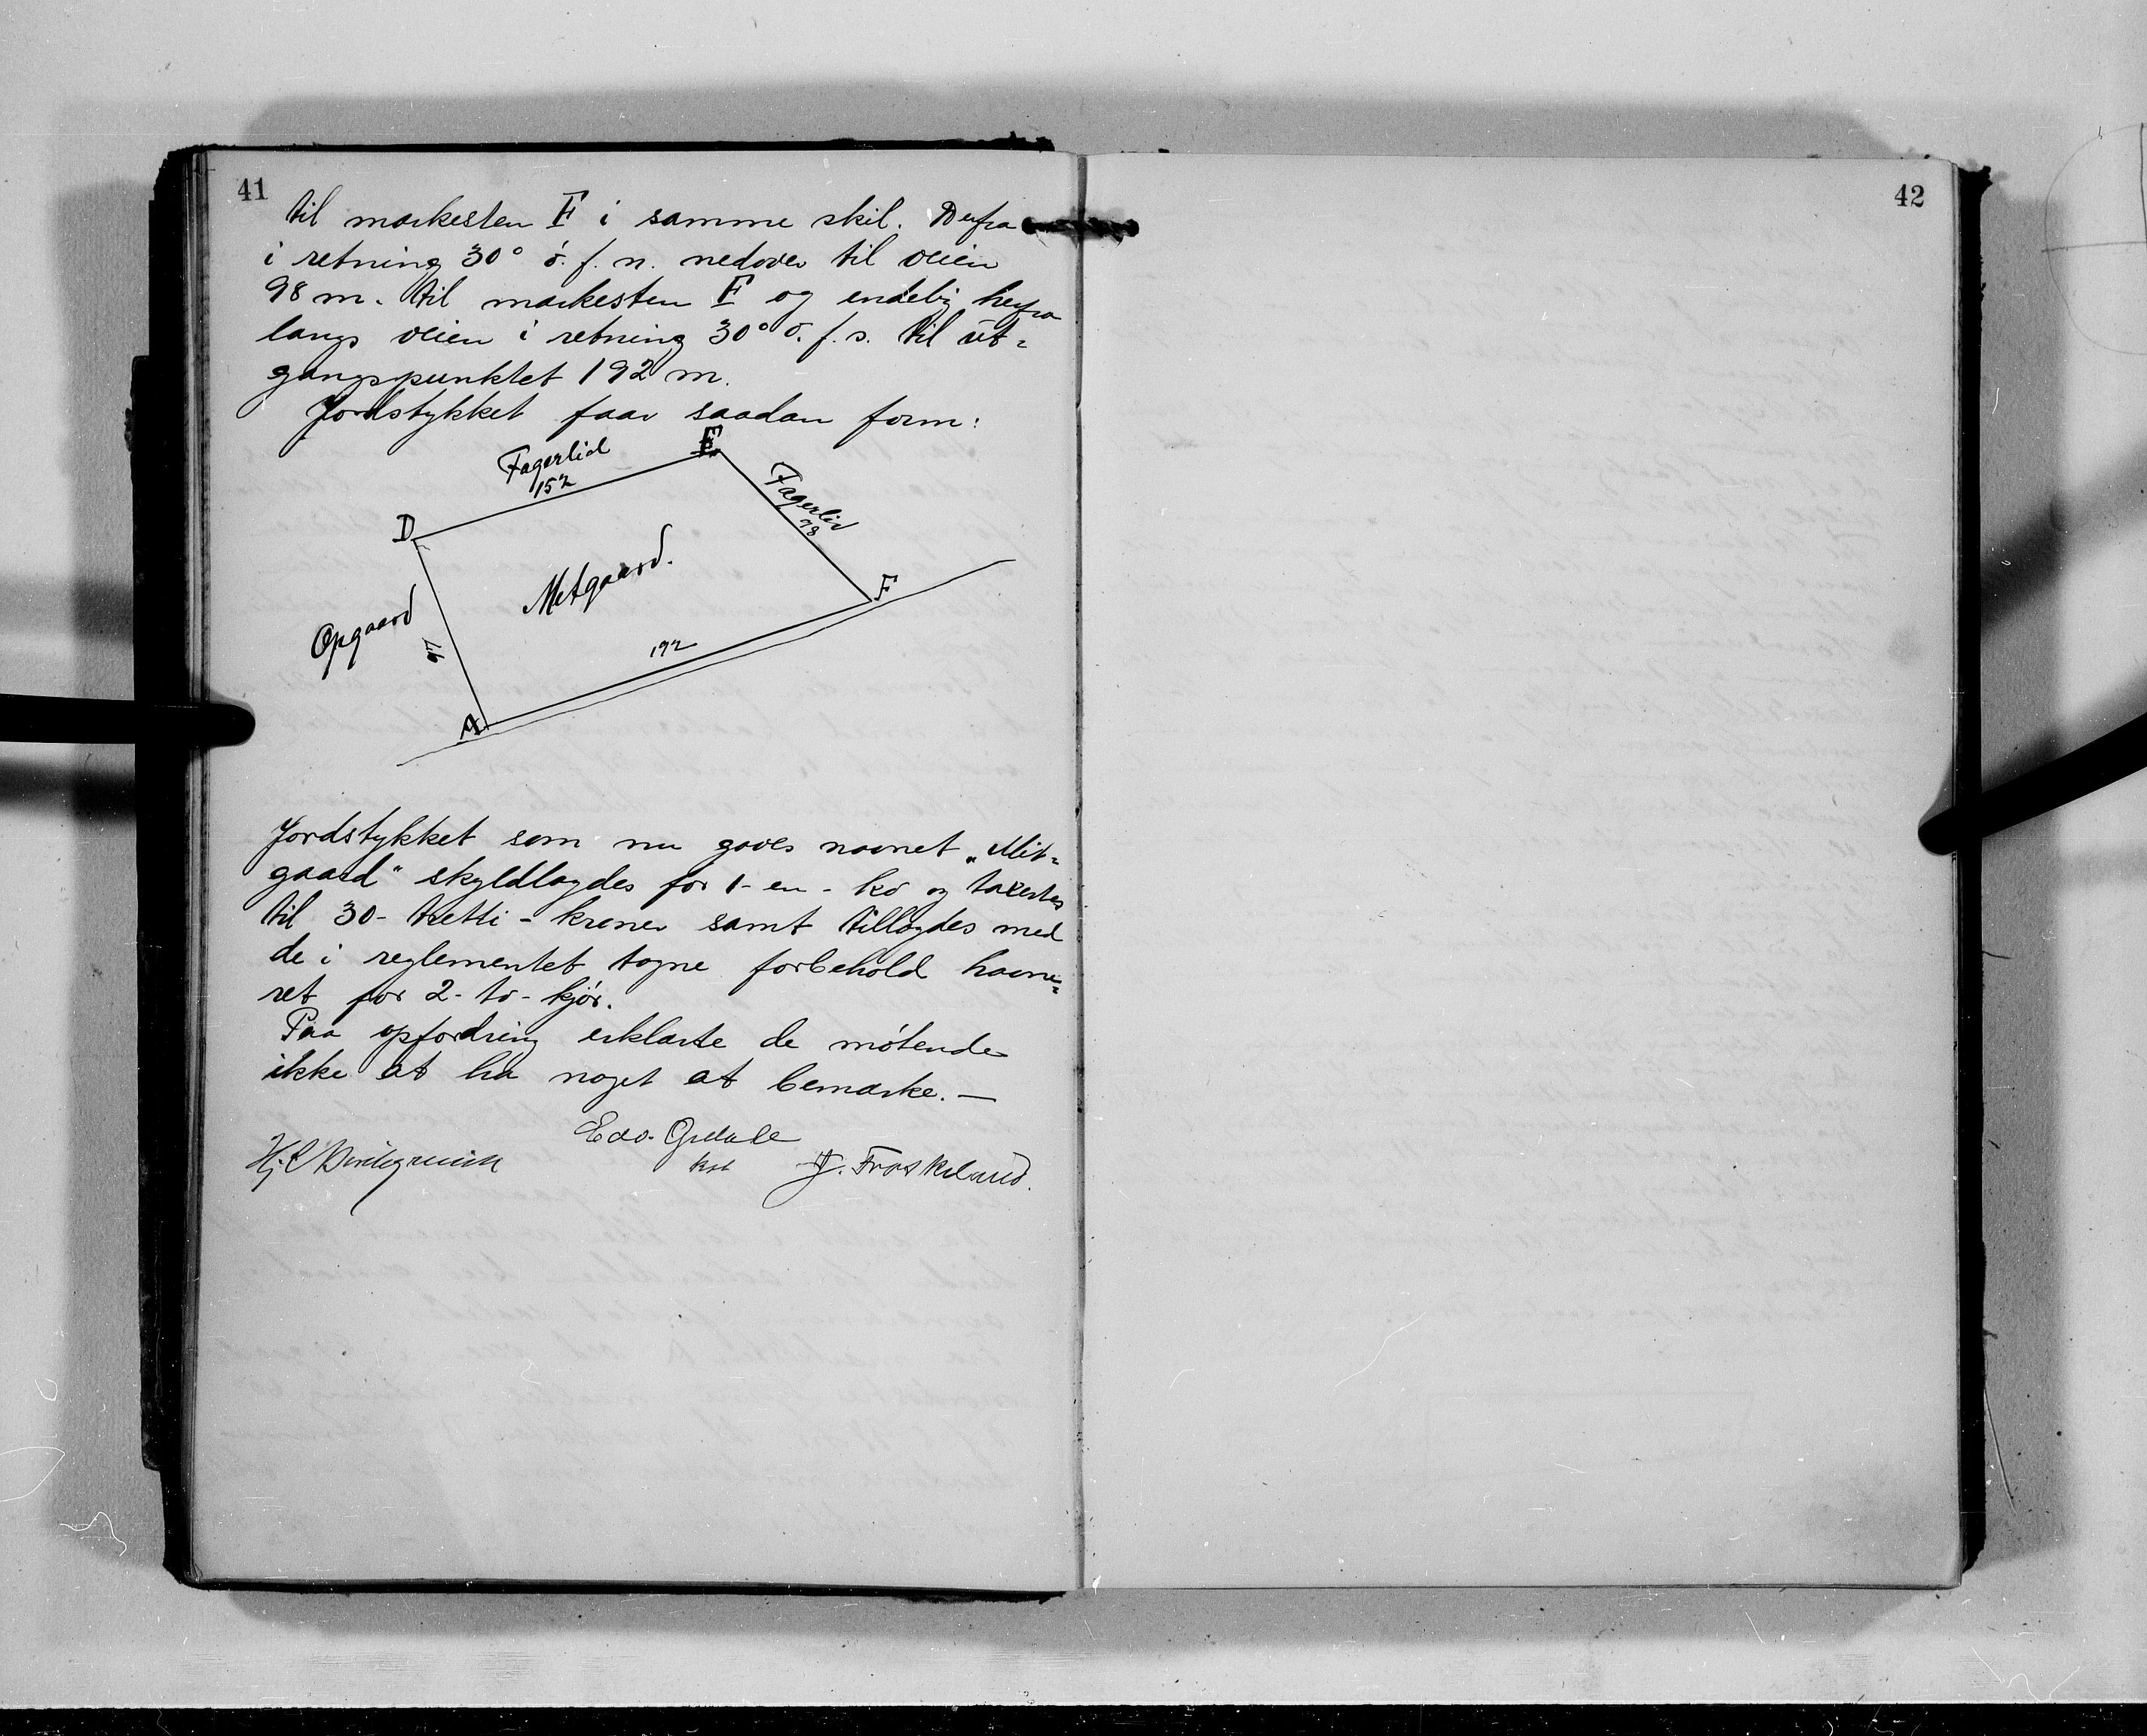 41
42
til merkesten E i samme skil. Derfra
i retning 30° ö. f. n. nedover til veien
98 m. til merkesten F og endelig herfra
langs veien i retning 30° ö. f. s. til ut=
gangspunktet 192 m.
Jordstykket faar saadan form:
Fagerlid
152
E
Fagerlid
98
D
Metgaard.
F
Opgaard
97
192
A
Jordstykket som nu gaves navnet "Mit=
gaard" skyldlagdes for 1- en - kö og takertes
til 30- tretti - kroner samt tillagdes med
de i reglementet tagne forbehold havne=
ret for 2- to - kjör.
Paa opfordring erklærte de mötende
ikke at ha noget at bemerke. —
Edv.
Hj.
J. Froskeland.